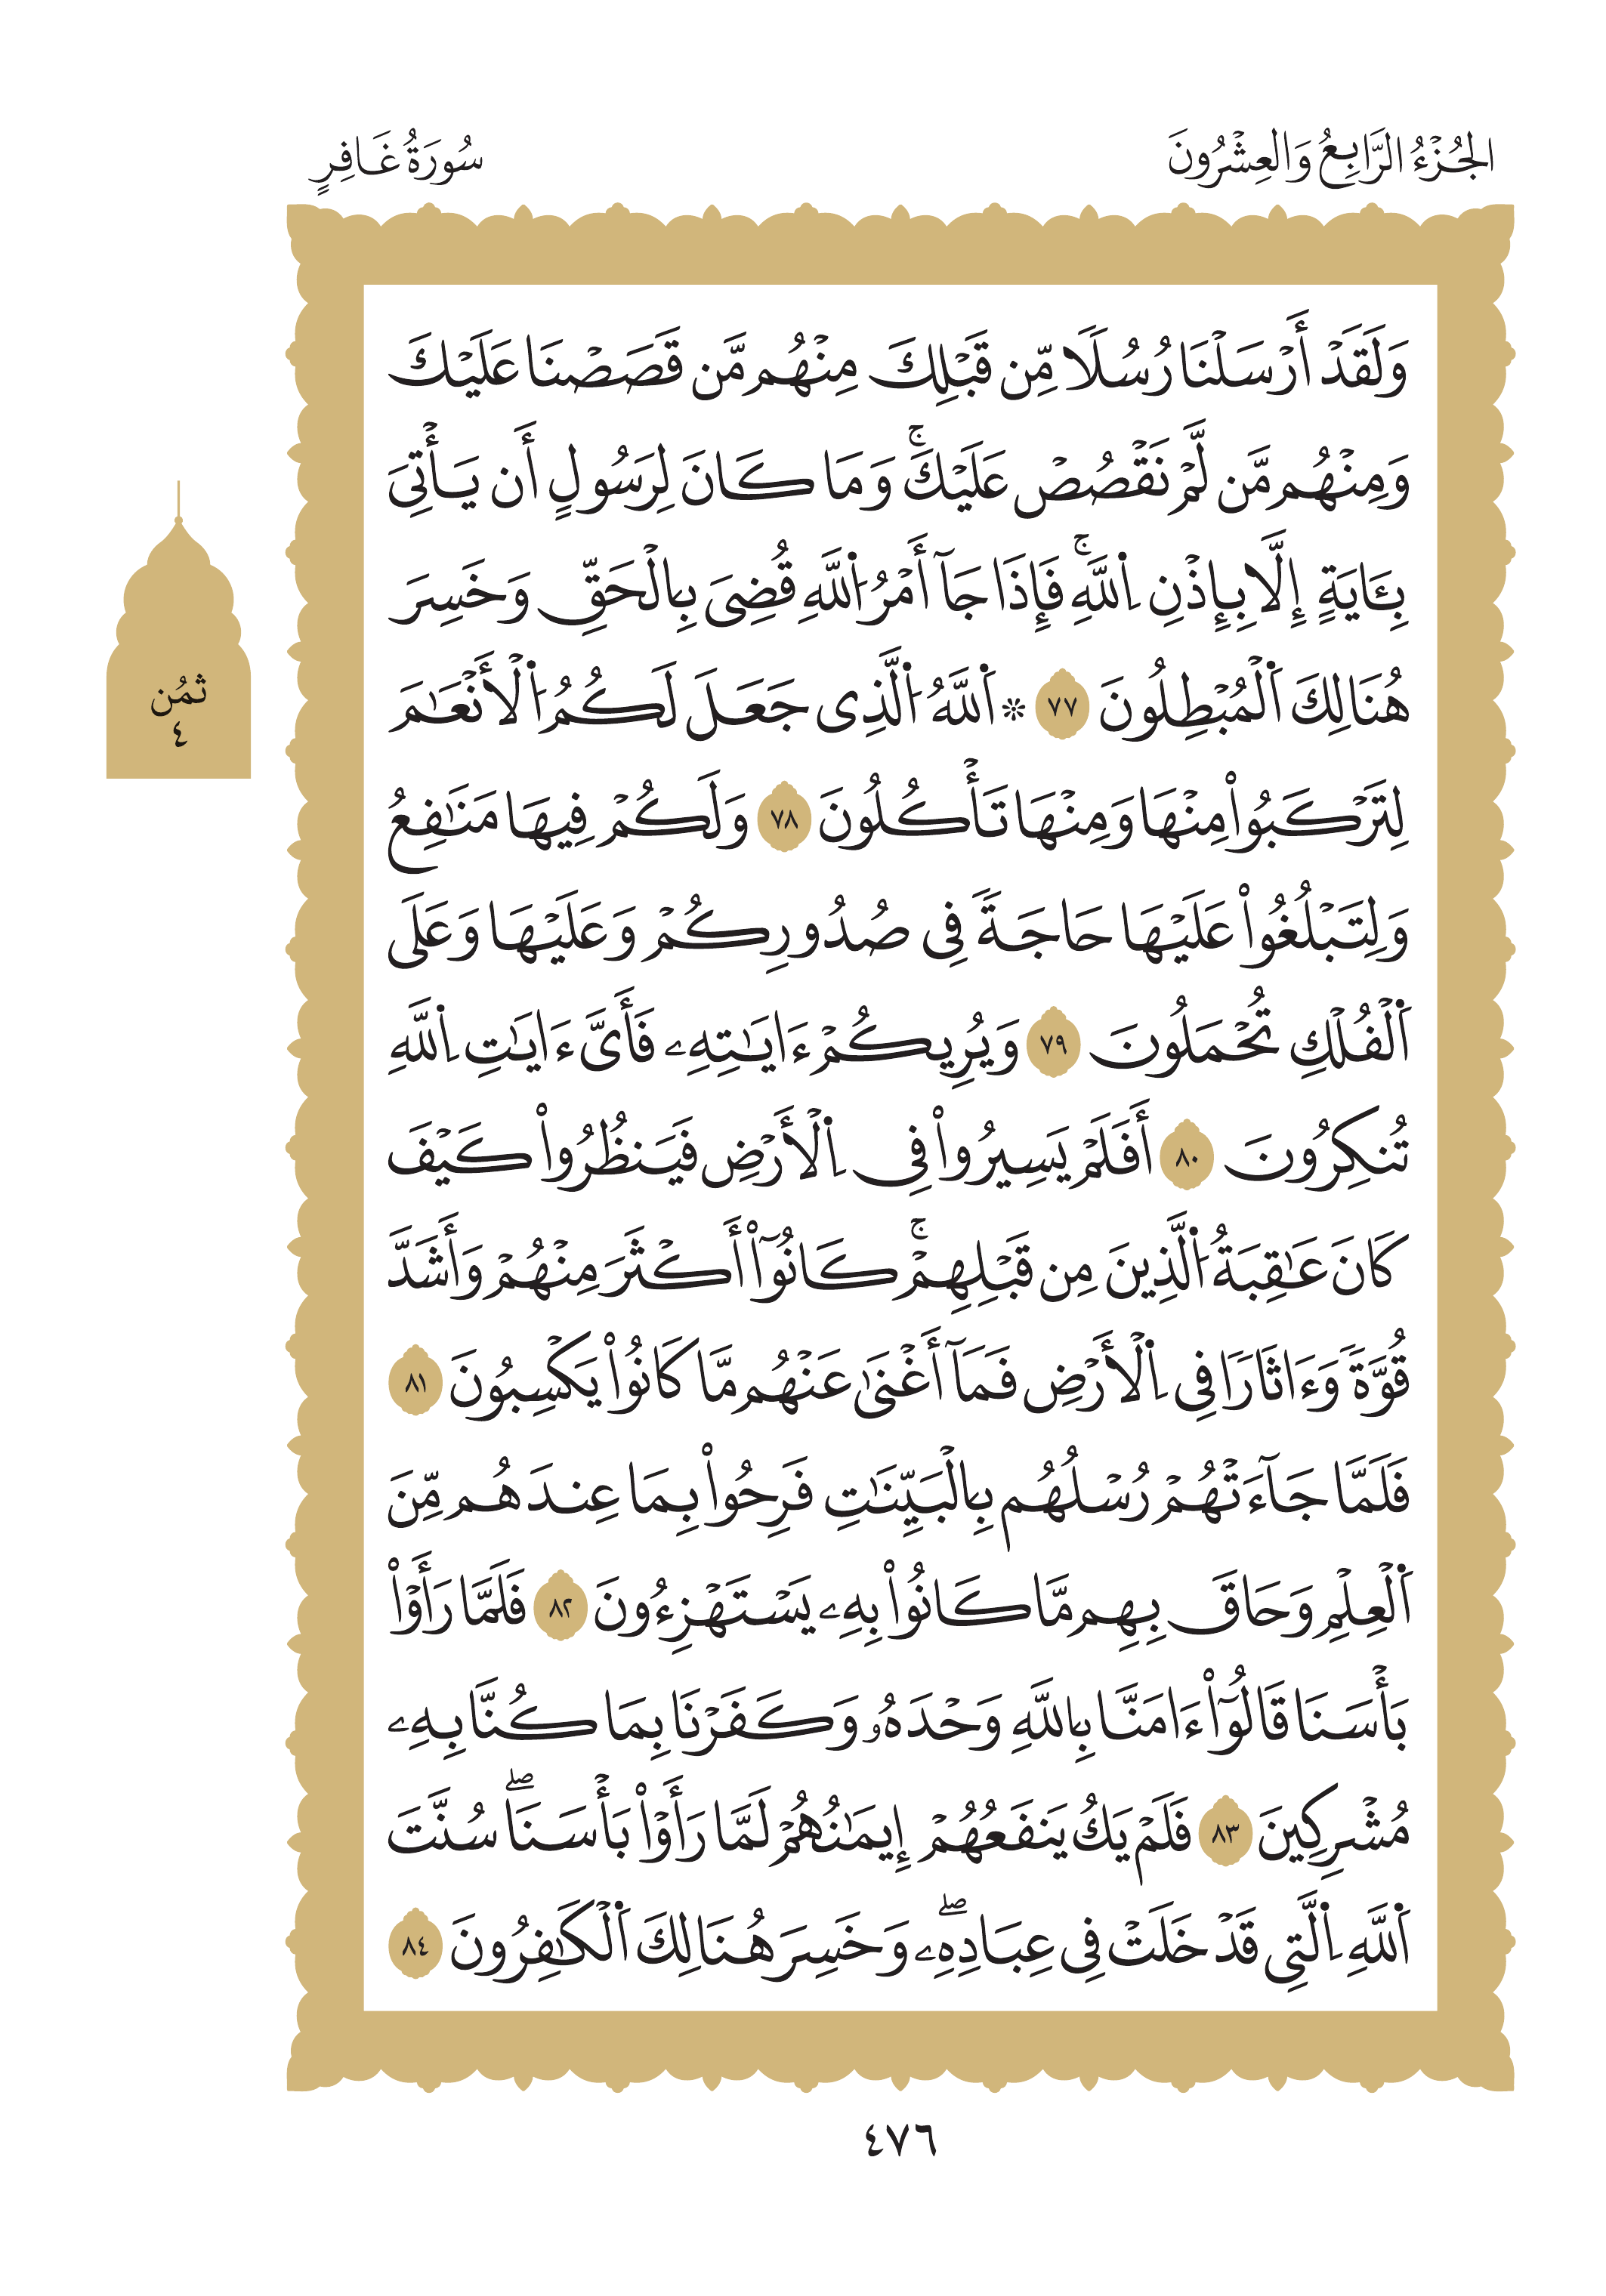 الجُزْءُ الرَّابِعُ وَالعِشْرُونَ
سُورَةُ غَافِرٍ
وَلَقَدْ أَرْسَلْنَا رُسُلٗا مِّن قَبْلِكَ مِنْهُم مَّن قَصَصْنَا عَلَيْكَ
وَمِنْهُم مَّن لَّمْ نَقْصُصْ عَلَيْكَۚ وَمَا كَانَ لِرَسُولٍ أَن يَأْتِىَ
بِـَٔايَةٍ إِلَّا بِإِذْنِ اِ۬للَّهِۚ فَإِذَا جَآ أَمْرُ اُ۬للَّهِ قُضِىَ بِالْحَقِّ وَخَسِرَ
هُنَالِكَ اَ۬لْمُبْطِلُونَ ٧٧ ۞ اَ۬للَّهُ اُ۬لَّذِى جَعَلَ لَكُمُ اُ۬لْأَنْعَٰمَ
لِتَرْكَبُواْ مِنْهَا وَمِنْهَا تَأْكُلُونَ ٧٨ وَلَكُمْ فِيهَا مَنَٰفِعُ
وَلِتَبْلُغُواْ عَلَيْهَا حَاجَةٗ فِى صُدُورِكُمْ وَعَلَيْهَا وَعَلَى
اَ۬لْفُلْكِ تُحْمَلُونَ ٧٩ وَيُرِيكُمْ ءَايَٰتِهِۦ فَأَىَّ ءَايَٰتِ اِ۬للَّهِ
تُنكِرُونَ ٨٠ أَفَلَمْ يَسِيرُواْ فِى اِ۬لْأَرْضِ فَيَنظُرُواْ كَيْفَ
كَانَ عَٰقِبَةُ اُ۬لَّذِينَ مِن قَبْلِهِمْۚ كَانُوٓاْ أَكْثَرَ مِنْهُمْ وَأَشَدَّ
قُوَّةٗ وَءَاثَارٗا فِى اِ۬لْأَرْضِ فَمَآ أَغْنَىٰ عَنْهُم مَّا كَانُواْ يَكْسِبُونَ ٨١
فَلَمَّا جَآءَتْهُمْ رُسْلُهُم بِالْبَيِّنَٰتِ فَرِحُواْ بِمَا عِندَهُم مِّنَ
اَ۬لْعِلْمِ وَحَاقَ بِهِم مَّا كَانُواْ بِهِۦ يَسْتَهْزِءُونَ ٨٢ فَلَمَّا رَأَوْاْ
بَأْسَنَا قَالُوٓاْ ءَامَنَّا بِاللَّهِ وَحْدَهُۥ وَكَفَرْنَا بِمَا كُنَّا بِهِۦ
مُشْرِكِينَ ٨٣ فَلَمْ يَكُ يَنفَعُهُمْ إِيمَٰنُهُمْ لَمَّا رَأَوْاْ بَأْسَنَاۖ سُنَّتَ
اَ۬للَّهِ اِ۬لَّتِى قَدْ خَلَتْ فِى عِبَادِهِۦۖ وَخَسِرَ هُنَالِكَ اَ۬لْكَٰفِرُونَ ٨٤
ثمُن
٤
٤٧٦